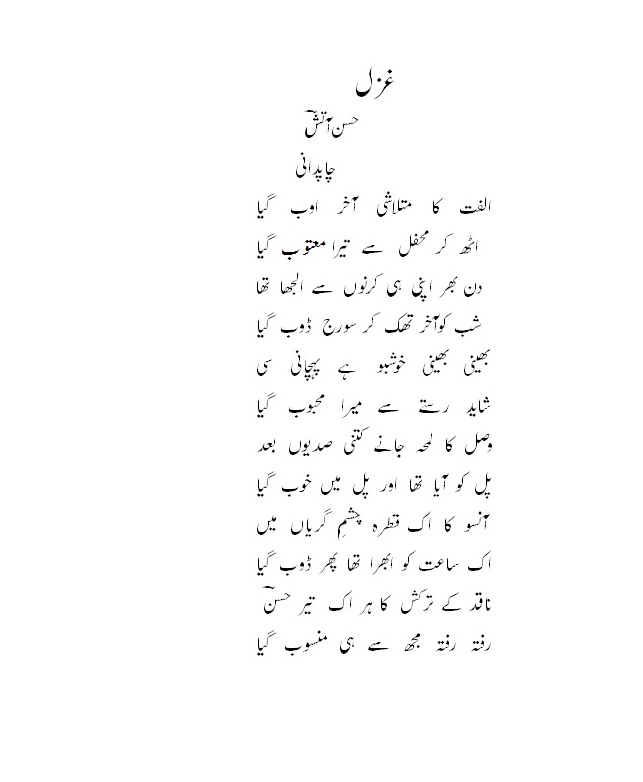 غزل
حسن آتشؔ
چاپدانی
الفت کا متلاشی آخر اوب گیا
اٹھ کر محفل سے تیرا معتوب گیا
دن بھر اپنی ہی کرنوں سے الجھا تھا
شب کوآخر تھک کر سورج ڈوب گیا
بھینی بھینی خوشبو ہے پہچانی سی
شاید رستے سے میرا محبوب گیا
وصل کا لمحہ جانے کتنی صدیوں بعد
پل کو آیا تھا اور پل میں خوب گیا
آنسو کا اک قطرہ چشمِ گریاں میں
اک ساعت کو ابھرا تھا پھر ڈوب گیا
ناقد کے ترکش کا ہر اک تیر حسنؔ
رفتہ رفتہ مجھ سے ہی منسوب گیا